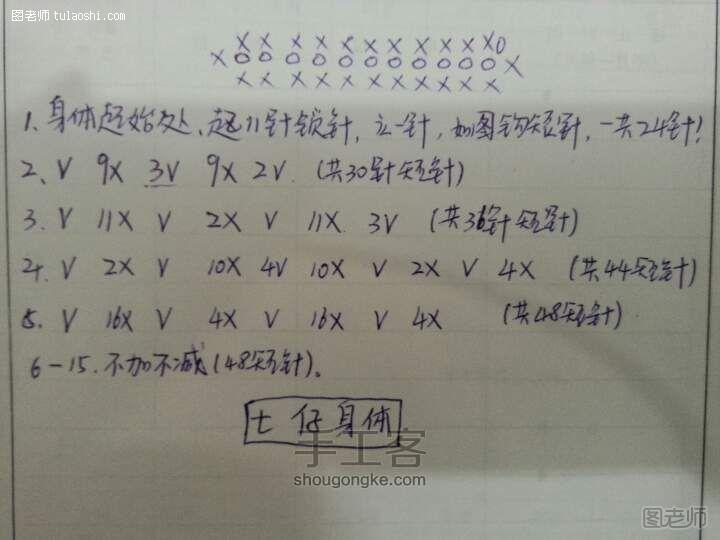 图老师 tulaoshi.com
X X X X X X X X X X X O
X O O O O O O O O O O O X
X X X X X X X X X X X
1、身体起始处、起11针锁针,立一针,如图钩短针,一共24针!
2、V 9X 3V 9X 2V (共30针短针)
3、V 11X V 2X V 11X 3V (共36针短针)
4、V 2X V 10X 4V 10X V 2X V 4X (共44短针)
5、V 16X V 4X V 16X V 4X (共48短针)
6-15、不加不减(48短针)。
七仔身体
手工客
shougongke.com
图老师